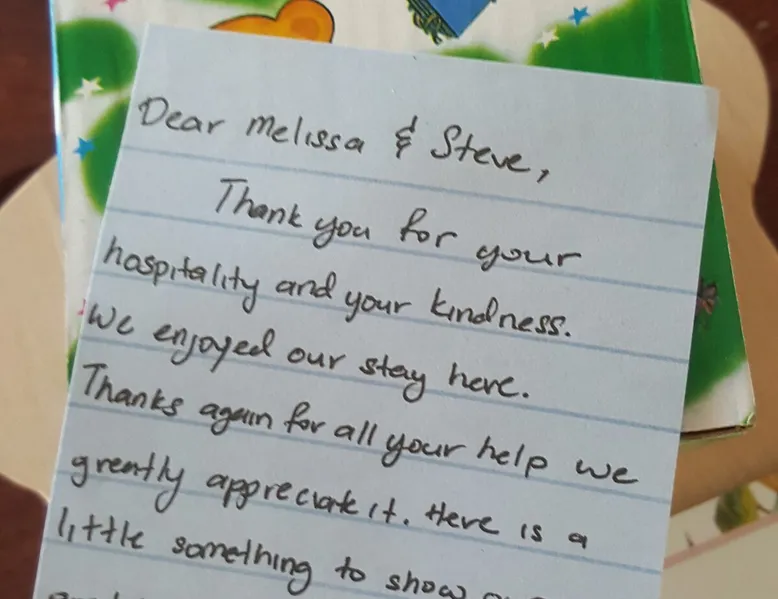 Dear Melissa & Steve,
Thank you for your
hospitality and your kindness.
We enjoyed our stay here.
Thanks again for all your help we
greatly appreciate it. Here is a
little something to show